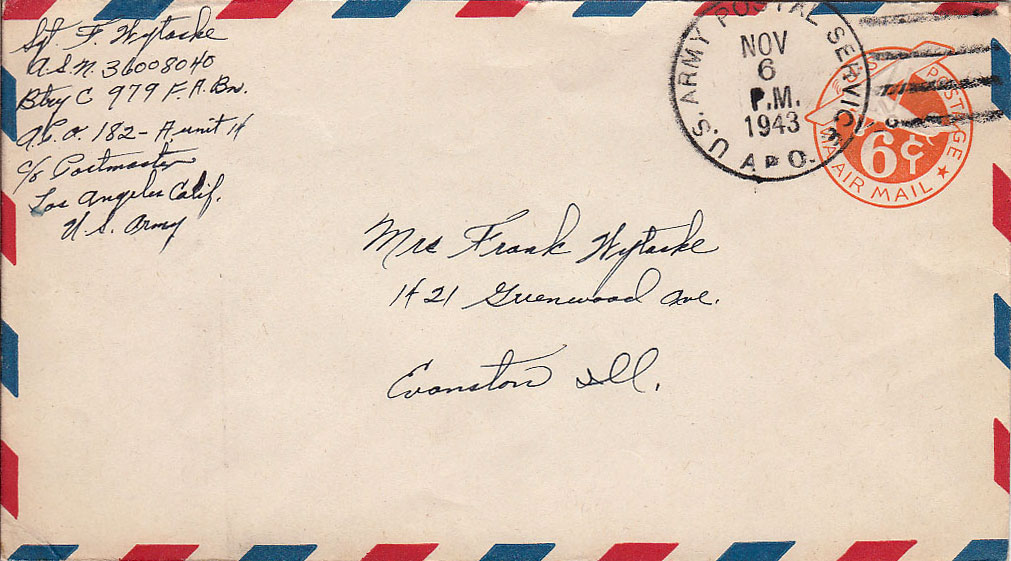 Sgt F. Wytaske
A.S.N. 36008040
Btry C 979 F.A. Bn.
A.P.O. 182 - A unit 14
c/o Postmaster
Los Angeles Calif.
U.S. Army
U.S. ARMY POSTAL SERVICE
NOV
6
P.M.
1943
A.P.O.
POSTAGE
6¢
VIA AIR MAIL
Mrs Frank Wytaske
1421 Greenwood Ave.
Evanston Ill.